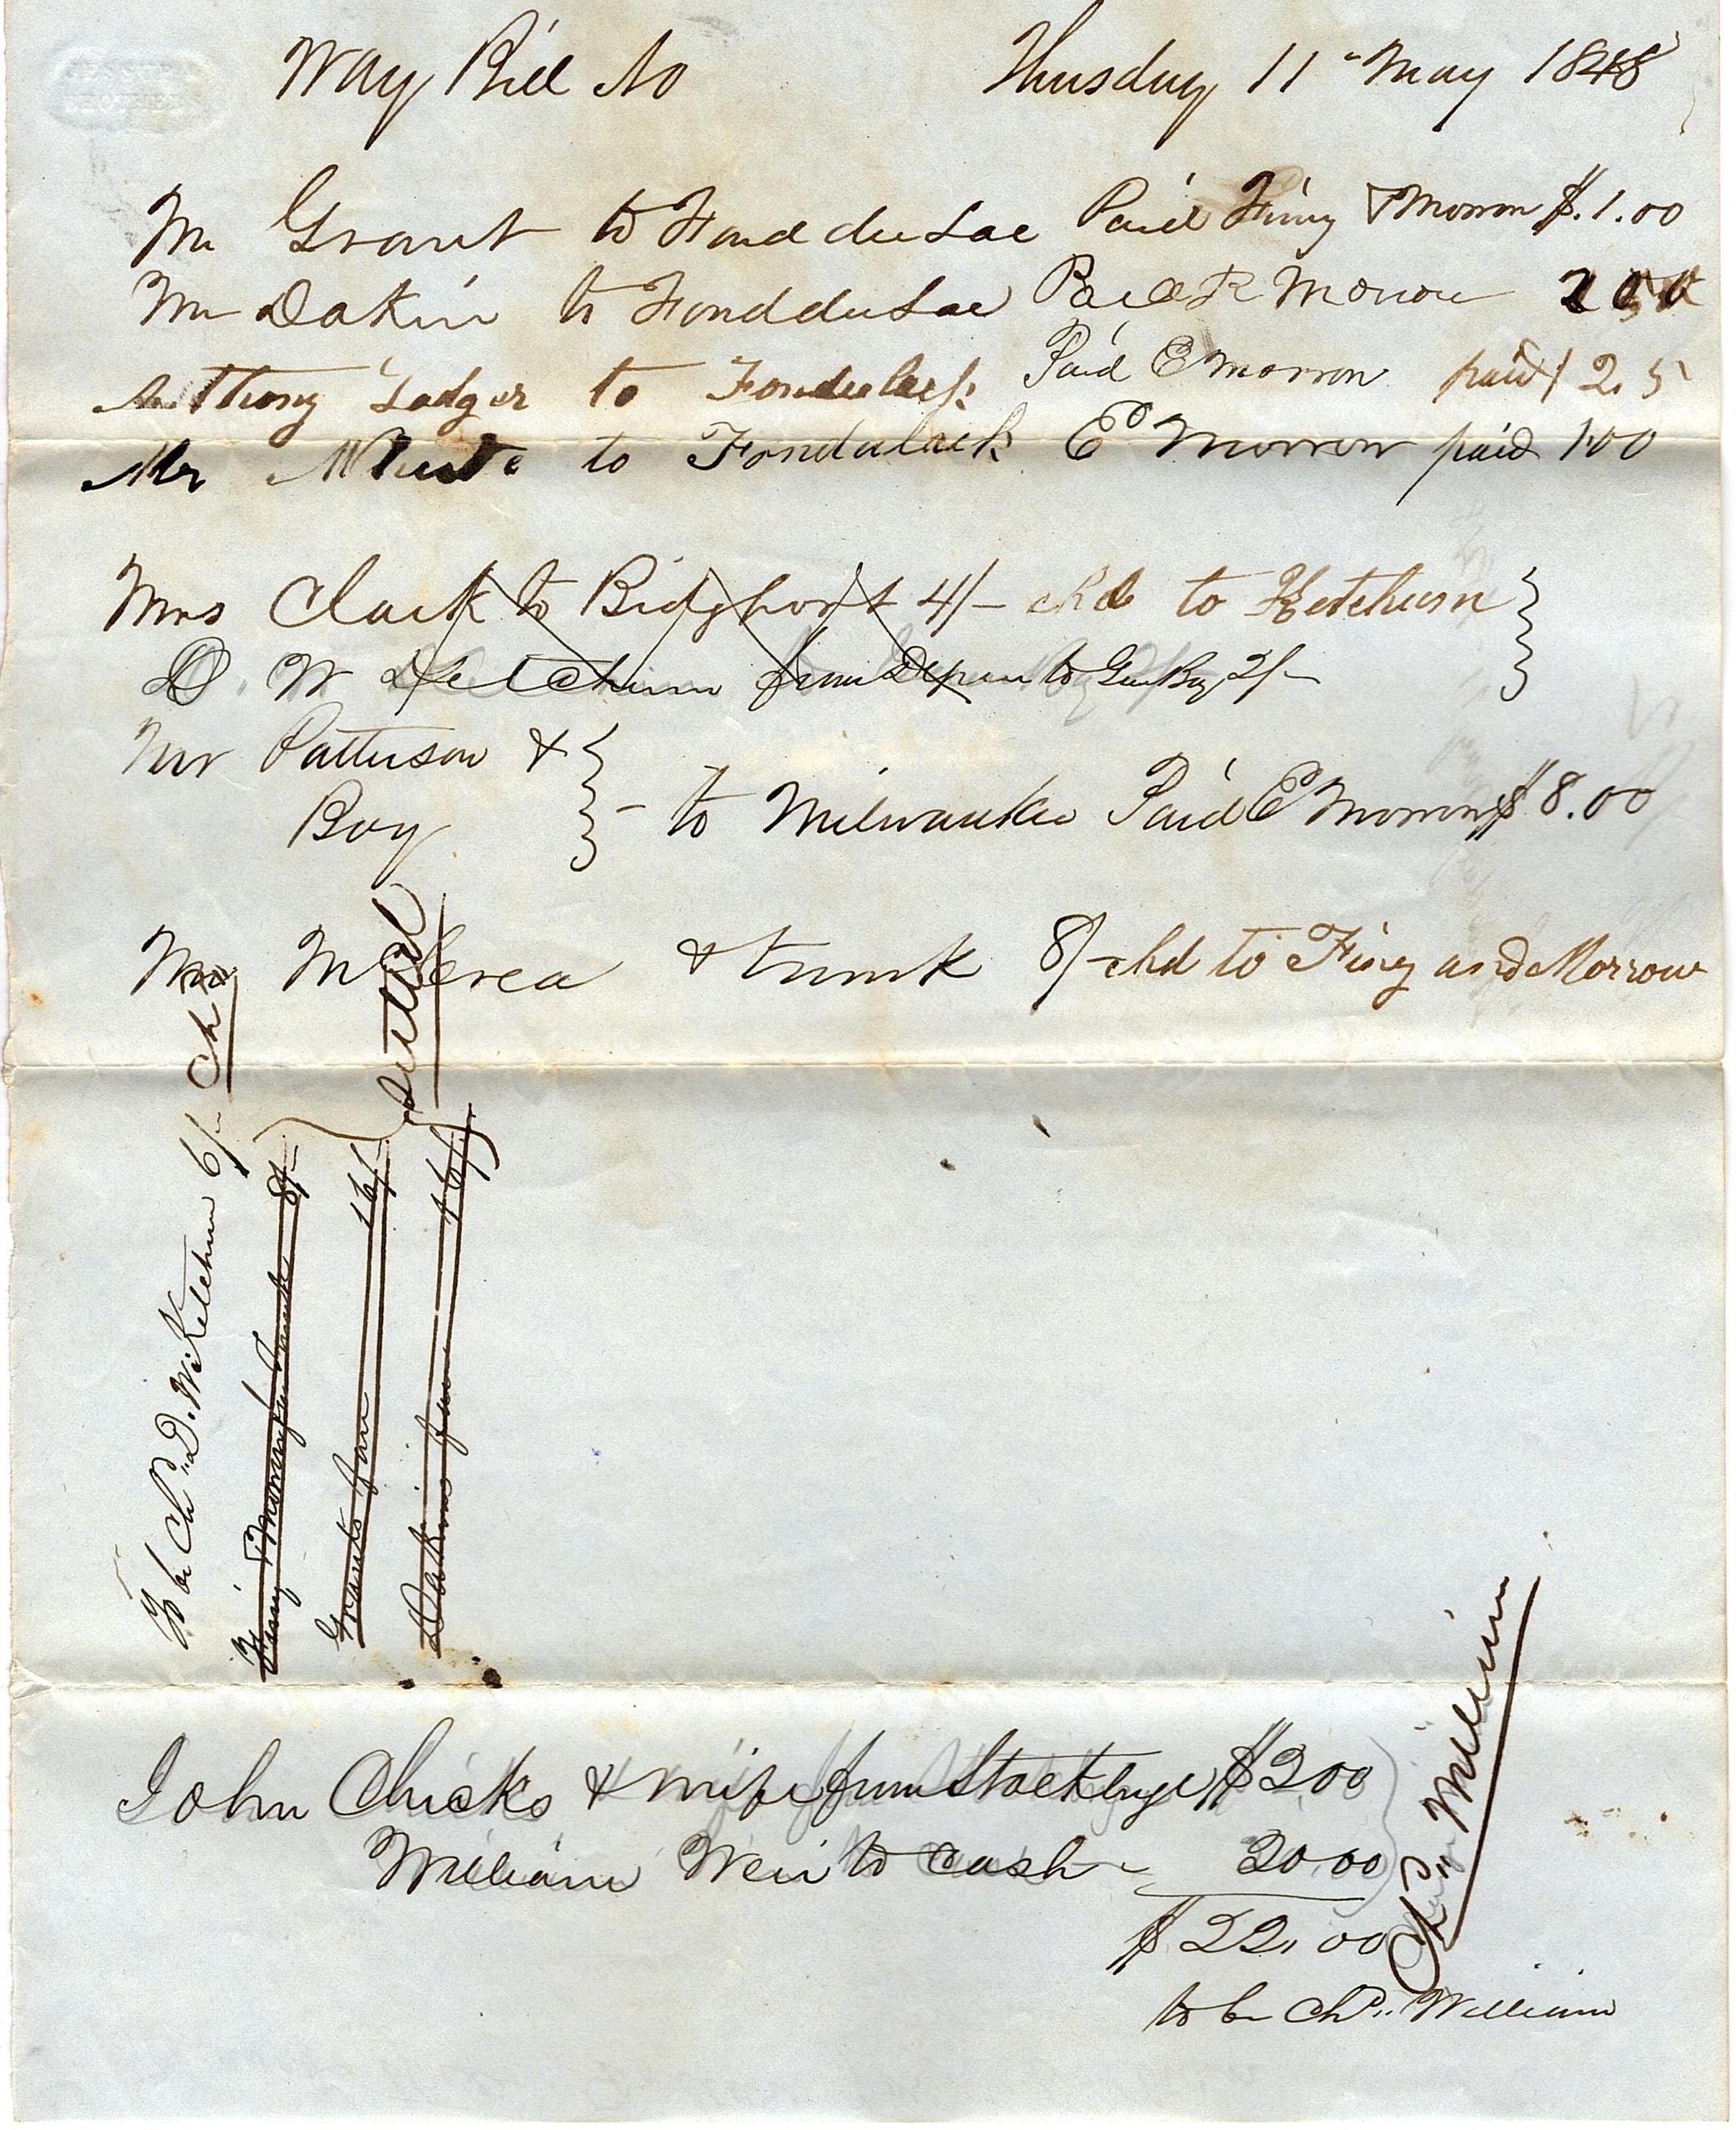 Way Bill No Thursday 11 May 1848
Mr Grant to Fond du Lac Paid Finy & Morrow $.1.00
Mr Dakin to Fond du Lac Paid Morrow
Anthony Ledger to Fondulack Paid E Morrow paid 1 25
Mr White to Fondulack E Morrow paid 1.00
Mrs Clark to Bidgport 4/- chd to Ketchum
D. W Ketchum from to Gren Bay 2/-
Mr Patterson &
Boy - to Milwaukee Paid E Morrow $8.00
McCrea & trunk 8/- chd to Finy and Morrow
To be Chd. D. W. Ketchum 6/- Chd
Finy & Morrow for trunk 8/-
Grants fare 16/-
Dakins fare 16/
Settled
John Chicks & wife from Stockbrige $2.00
William Weir to cash - 20.00
$22.00
to be Chd. William
Chd. William